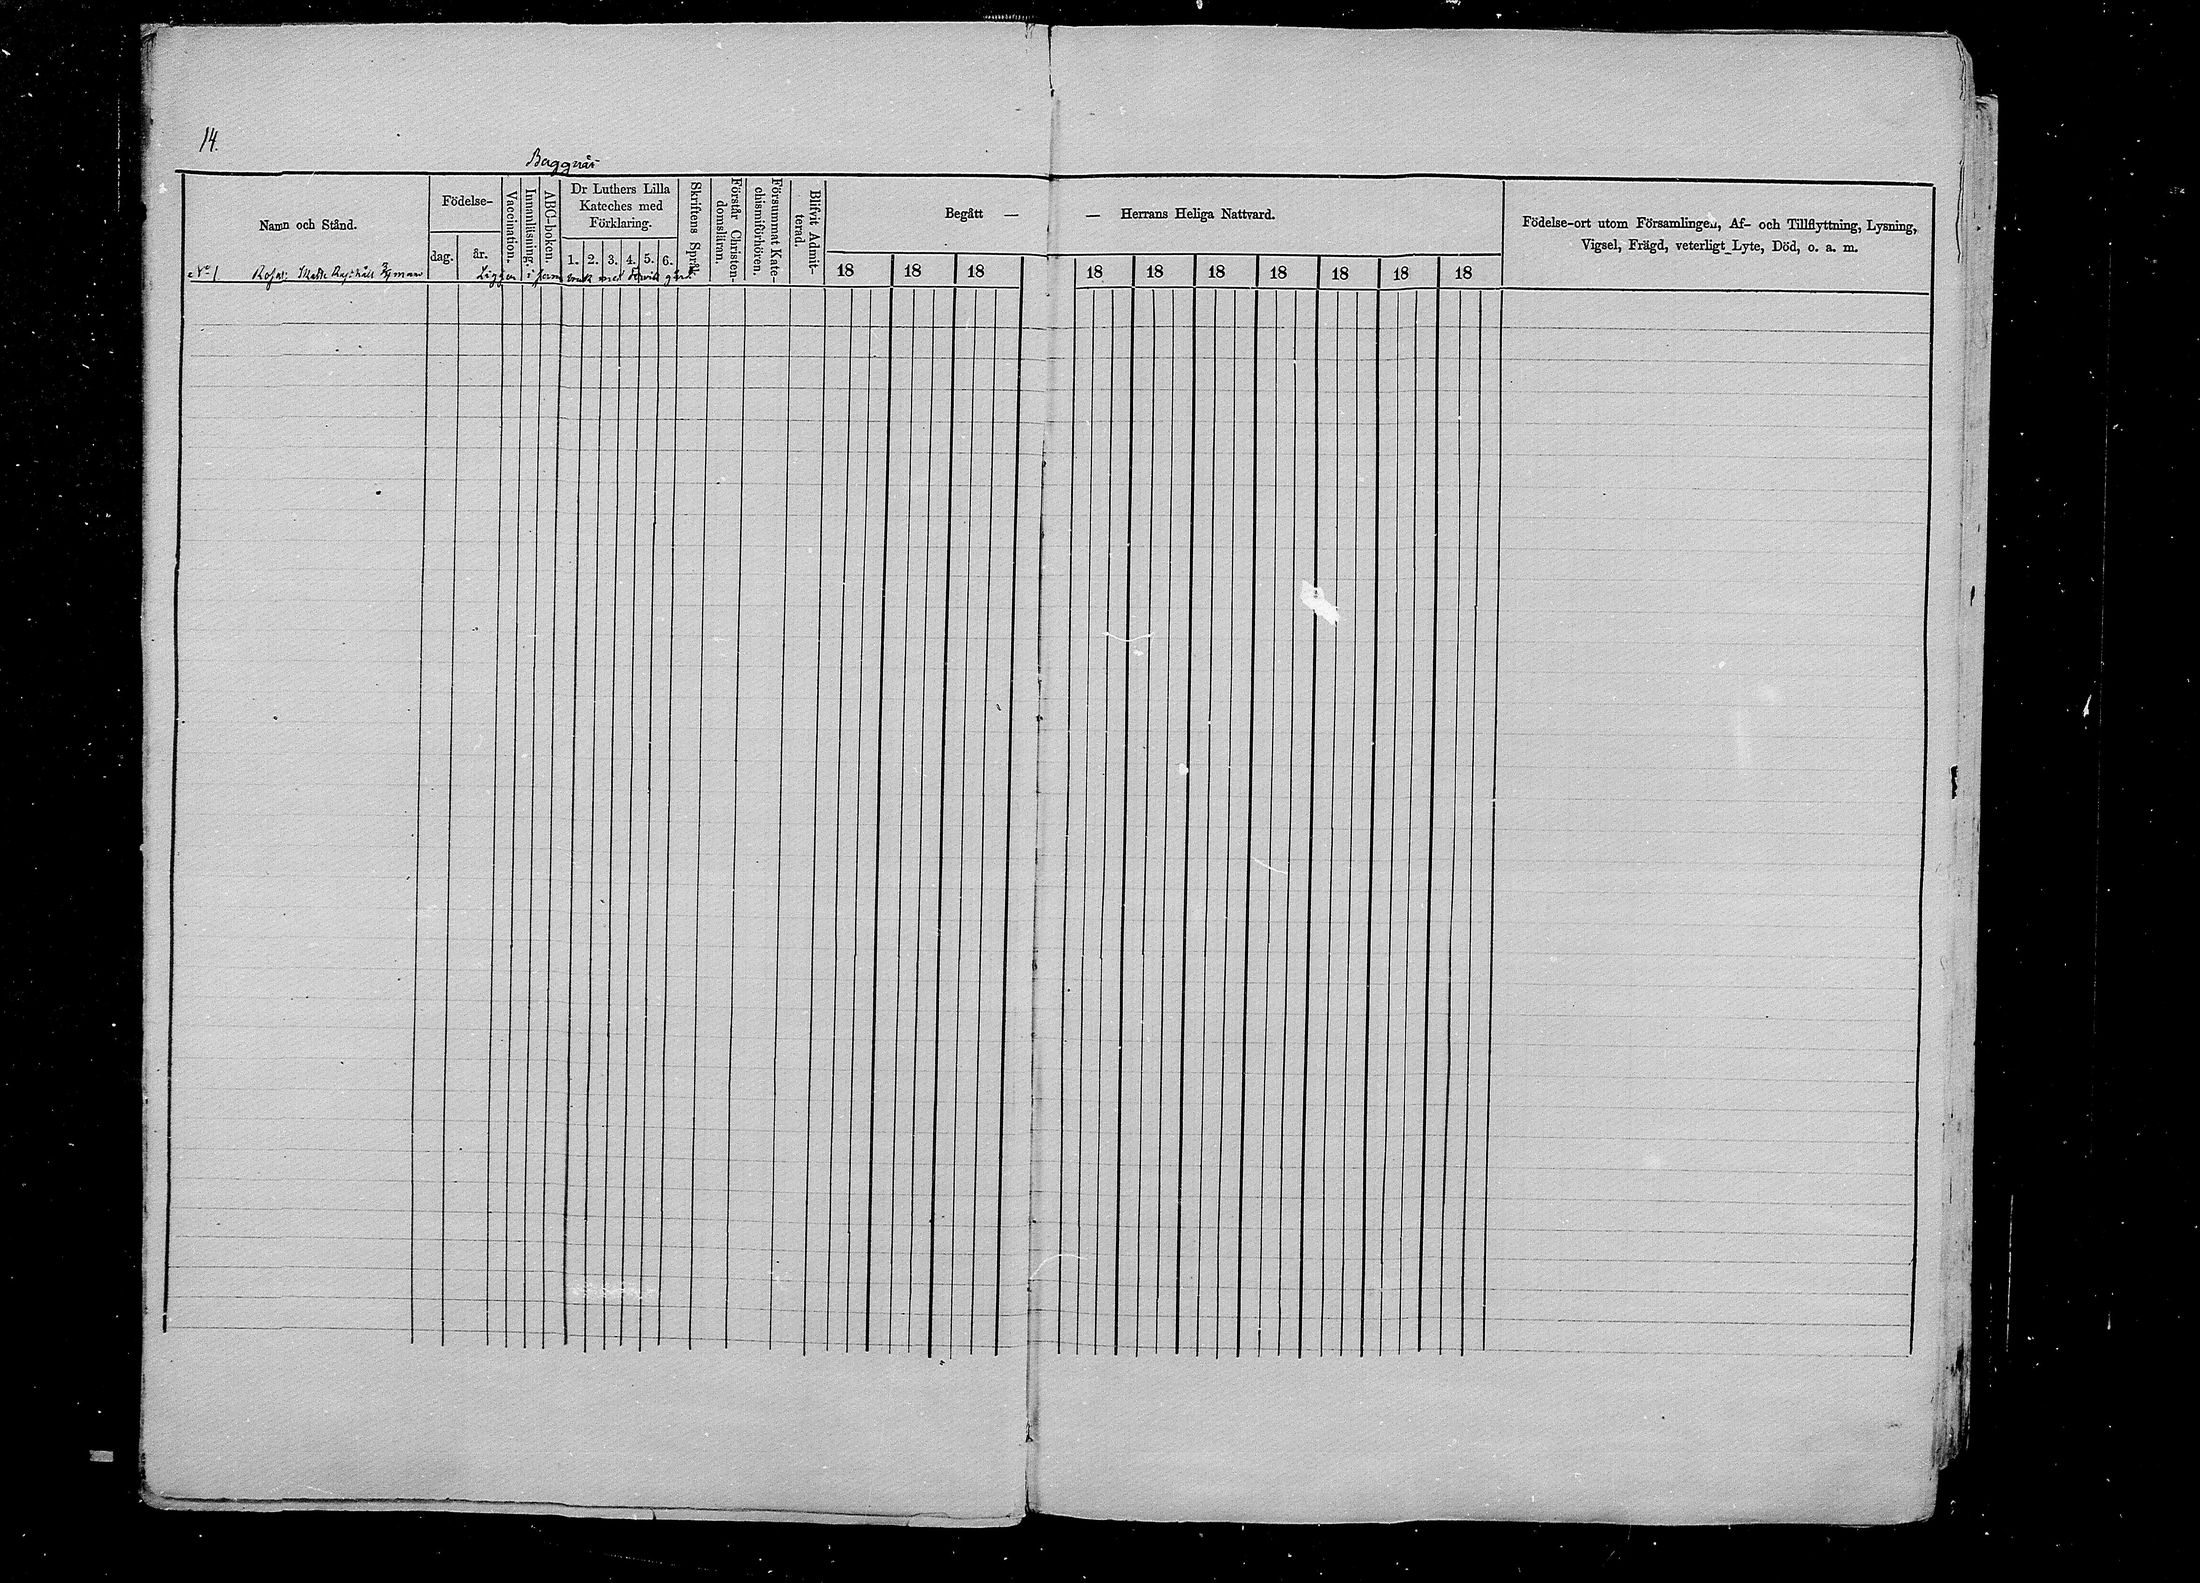 14.
Baggnäs
Namn och Stånd.
Födelse-
dag.
år.
Vaccination.
Innanläsning.
ABC-boken.
Dr Luthers Lilla
Kateches med
Förklaring.
1. 2. 3. 4. 5. 6.
Skriftens Språk.
Förstår Christen-
domsläran.
Försummat Kate-
chismiförhören.
Blifvit Admit-
terad.
Begått — — Herrans Heliga Nattvard.
18 18 18 18 18 18 18 18 18 18
Födelse-ort utom Församlingen, Af- och Tillflyttning, Lysning,
Vigsel, Frägd, veterligt Lyte, Död, o. a. m.
No 1 Ligger i med gård